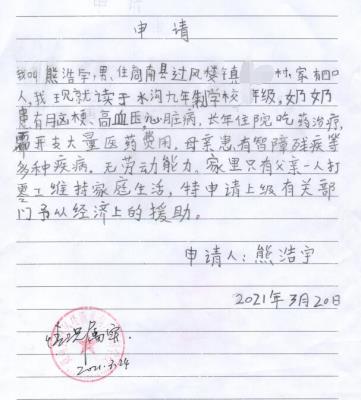 申请
我叫熊浩宇,男,住商南县过风楼镇 村,家有四口
人,我现就读于水沟九年制学校 年级,奶奶
患有脑梗、高血压心脏病,长年住院吃药治疗,
需开支大量医药费用。母亲患有智障残疾等
多种疾病,无劳动能力。家里只有父亲一人打
工维持家庭生活,特申请上级有关部
门予从经济上的援助。
申请人:熊浩宇
2021年3月20日
情况属实.
2021.3.24